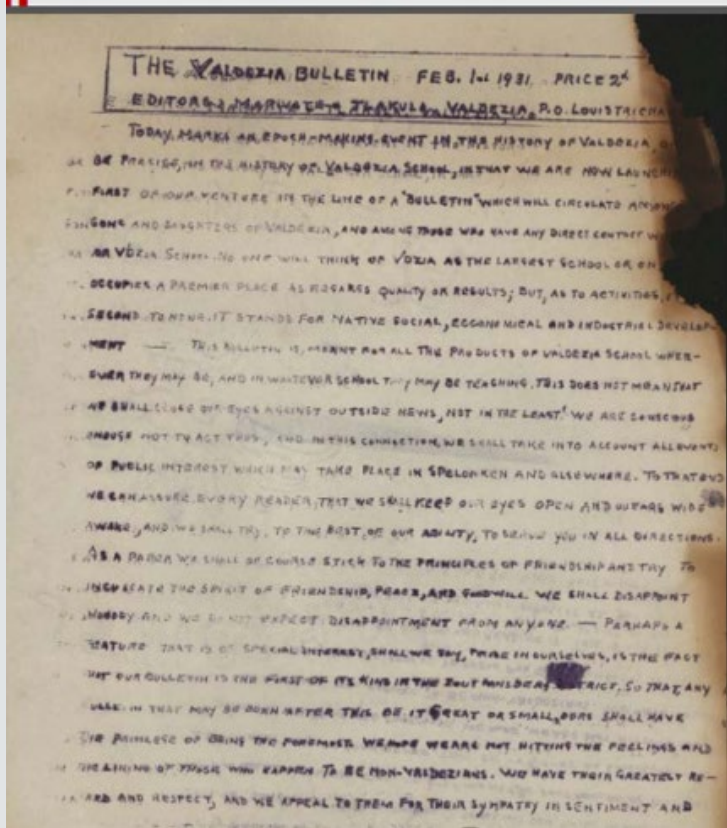 THE VALDEZIA BULLETIN FEB. 1st 1931. PRICE 2d
EDITORS VALDEZIA, P.O. LOUISTRICHA
TODAY, MARKS AN EPOCH-MAKING EVENT IN THE HISTORY OF VALDEZIA,
BE PRECISE, IN THE HISTORY OF VALDEZIA SCHOOL, IN THAT WE ARE NOW LAUNCHI
FIRST OF OUR VENTURE IN THE LINE OF A "BULLETIN" WHICH WILL CIRCULATE AMONG
SONS AND DAUGHTERS OF VALDEZIA, AND AMONG THOSE WHO HAVE ANY DIRECT CONTACT W
OR VDZIA SCHOOL. NO ONE WILL THINK OF VDZIA AS THE LARGEST SCHOOL OR ON
OCCUPIES A PREMIER PLACE AS REGARDS QUALITY OR RESULTS; BUT, AS TO ACTIVITIES,
SECOND TO NONE. IT STANDS FOR NATIVE SOCIAL, ECONOMICAL AND INDUSTRIAL DEVELOP-
MENT — THIS BULLETIN IS MEANT FOR ALL THE PRODUCTS OF VALDEZIA SCHOOL WHER-
EVER THEY MAY BE, AND IN WHATEVER SCHOOL THEY MAY BE TEACHING. THIS DOES NOT MEAN THAT
WE SHALL CLOSE OUR EYES AGAINST OUTSIDE NEWS, NOT IN THE LEAST! WE ARE
ENOUGH NOT TO ACT THUS, AND IN THIS CONNECTION, WE SHALL TAKE INTO ACCOUNT ALL EVENTS
OF PUBLIC INTEREST WHICH MAY TAKE PLACE IN SPELONKEN AND ELSEWHERE. TO THAT END
WE CAN ASSURE EVERY READER, THAT WE SHALL KEEP OUR EYES OPEN AND OUR EARS WIDE
AWAKE, AND WE SHALL TRY, TO THE BEST, OF OUR ABILITY, TO SERVE YOU IN ALL DIRECTIONS.
AS A PAPER WE SHALL OF COURSE STICK TO THE PRINCIPLES OF FRIENDSHIP AND TRY TO
INCULCATE THE SPIRIT OF FRIENDSHIP, PEACE, AND GOODWILL. WE SHALL DISAPPOINT
NOBODY AND WE DO NOT EXPECT DISAPPOINTMENT FROM ANYONE. — PERHAPS A
FEATURE THAT IS OF SPECIAL INTEREST, SHALL WE SAY, PRIDE IN OURSELVES, IS THE FACT
OUR BULLETIN IS THE FIRST OF ITS KIND IN THE ZOUTPANSBERG DISTRICT. SO THAT, ANY
IN THAT MAY BE BORN AFTER THIS BE IT GREAT OR SMALL, OURS SHALL HAVE
OF BEING THE FOREMOST. WE HOPE WE ARE NOT HITTING THE FEELINGS AND
OF THOSE WHO HAPPEN TO BE NON-VALDEZIANS. WE HAVE THEIR GREATEST RE-
ARD AND RESPECT, AND WE APPEAL TO THEM FOR THEIR SYMPATHY IN SENTIMENT AND